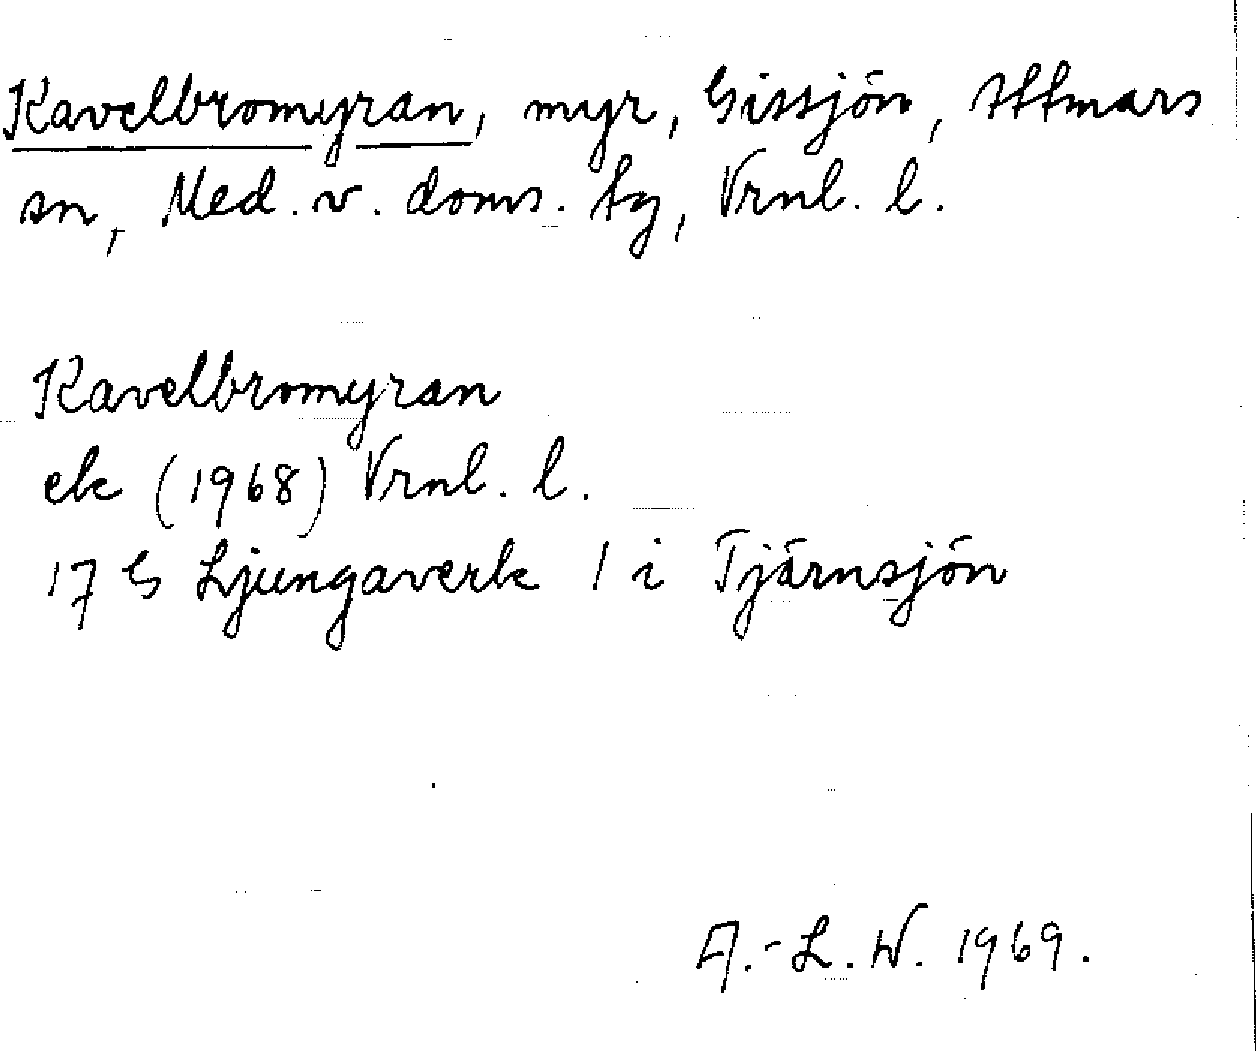 Kavelbromyran, myr, Gissjön, Attmars
sn, Med. v. doms. tg, Vrnl. l.
Kavelbromyran
ek (1968) Vrnl. l.
17 G Ljungaverk 1 i Tjärnsjön
A.-L. W. 1969.